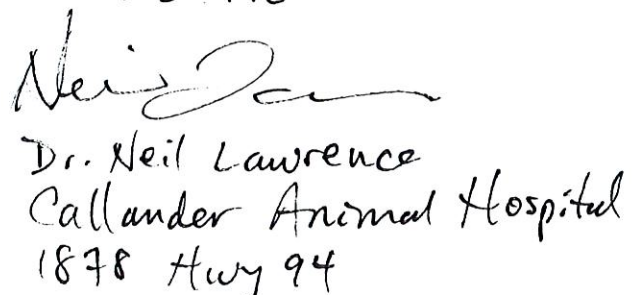 Dr. Neil Lawrence
Callander Animal Hospital
1878 Hwy 94